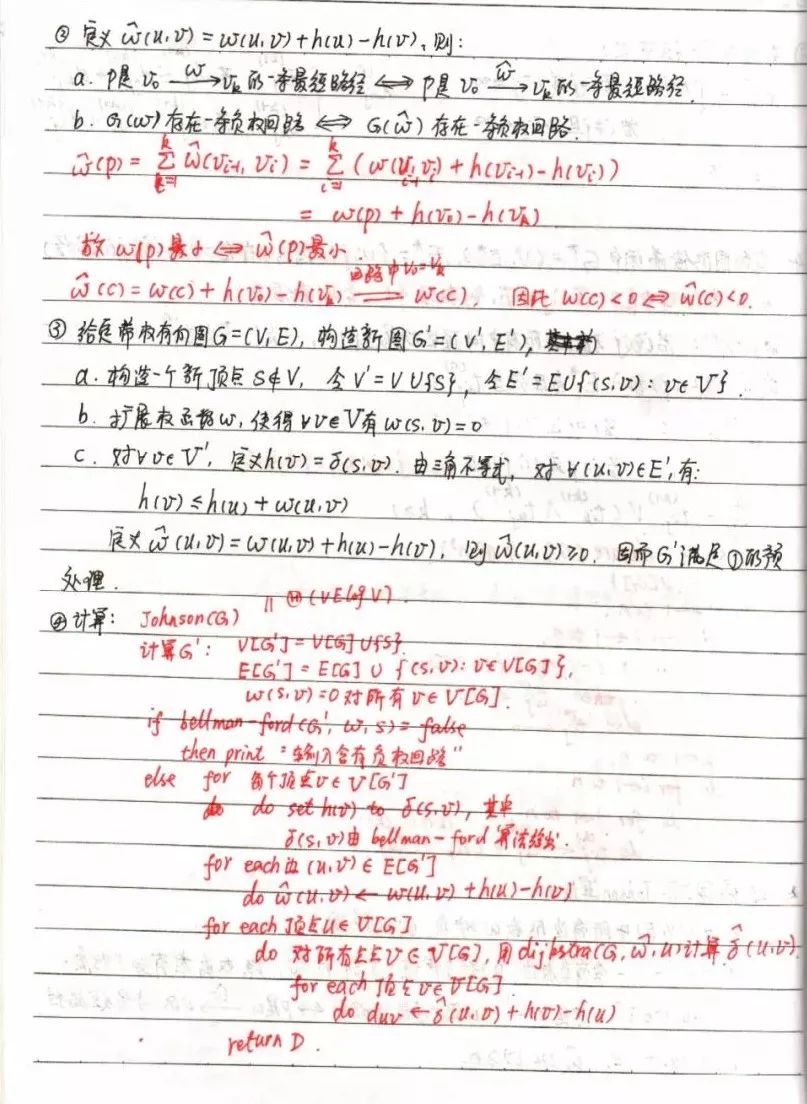 ② 定义 ŵ(u,v) = w(u,v) + h(u) - h(v), 则:
a. P是 v₀ —w→ vₖ 的一条最短路径 ⟺ P是 v₀ —ŵ→ vₖ 的一条最短路径.
b. G(w) 存在一条负权回路 ⟺ G(ŵ) 存在一条负权回路.
ŵ(p) = Σ ŵ(vᵢ₋₁, vᵢ) = Σ (w(vᵢ₋₁, vᵢ) + h(vᵢ₋₁) - h(vᵢ))
= w(p) + h(v₀) - h(vₖ)
故 w(p) 最小 ⟺ ŵ(p) 最小
回路中 v₀=vₖ
ŵ(c) = w(c) + h(v₀) - h(vₖ) = w(c), 因此 w(c) < 0 ⟺ ŵ(c) < 0.
③ 给定带权有向图 G = (V, E), 构造新图 G' = (V', E'),
a. 构造一个新顶点 S∉V, 令 V' = V∪{S}, 令 E' = E∪{(s,v): v∈V}.
b. 扩展权函数 w, 使得 ∀v∈V 有 w(s,v) = 0
c. 对∀v∈V', 定义 h(v) = δ(s,v). 由三角不等式, 对 ∀(u,v)∈E', 有:
h(v) ≤ h(u) + w(u,v)
定义 ŵ(u,v) = w(u,v) + h(u) - h(v), 则 ŵ(u,v) ≥ 0. 因而 G' 满足 ① 的预
处理.
// Θ(VElogV).
④ 计算: Johnson(G)
计算G': V[G'] = V[G]∪{S}.
E[G'] = E[G] ∪ {(s,v): v∈V[G]},
w(s,v) = 0 对所有 v∈V[G].
if bellman-ford(G', w, s) = false
then print "输入含有负权回路"
else for 每个顶点 v∈V[G']
do set h(v) to δ(s,v), 其中
δ(s,v) 由 bellman-ford 算法给出.
for each 边 (u,v) ∈ E[G']
do ŵ(u,v) ← w(u,v) + h(u) - h(v)
for each 顶点 u∈V[G]
do 对所有点 v∈V[G], 用 dijkstra(G, ŵ, u) 计算 δ̂(u,v).
for each 顶点 v∈V[G].
do duv ← δ̂(u,v) + h(v) - h(u)
return D.